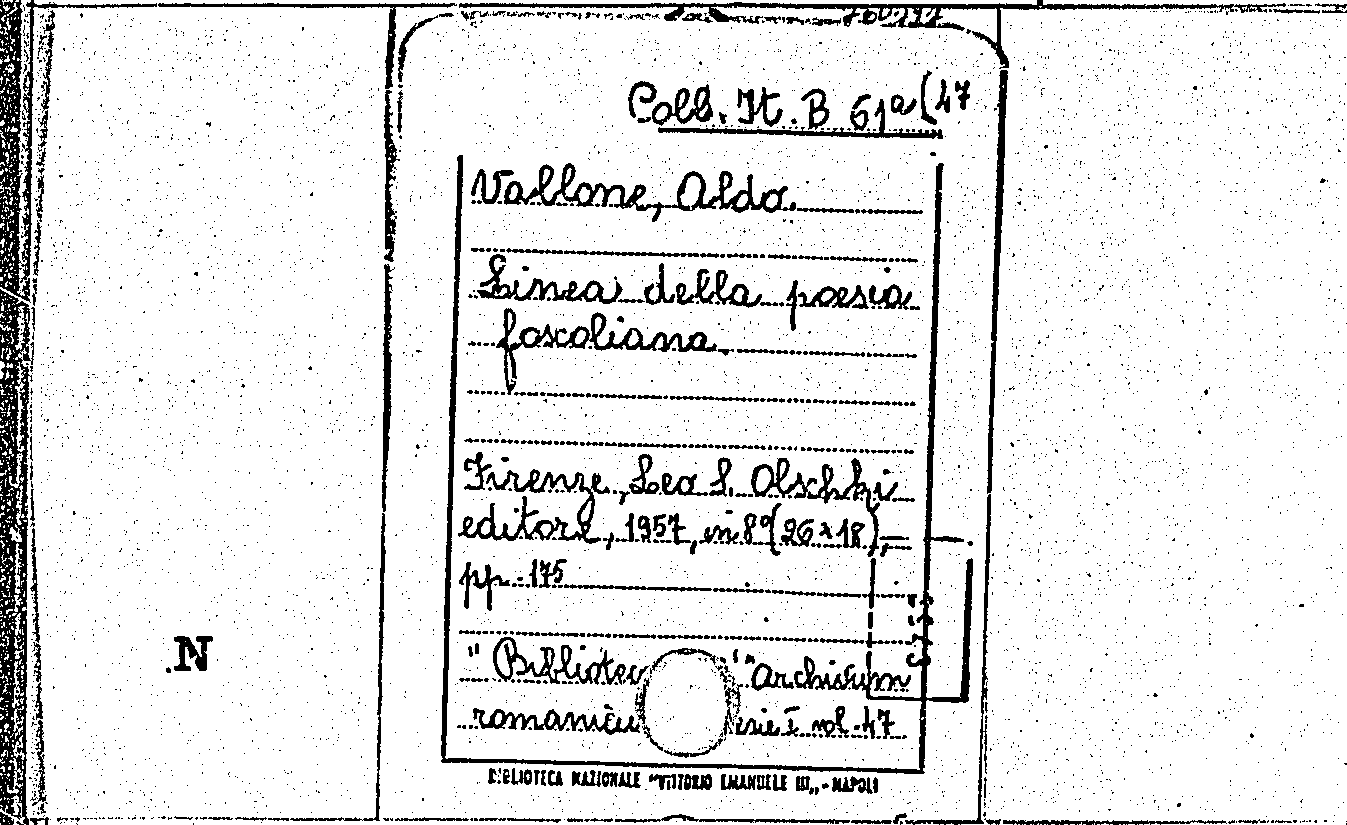 Coll. It. B 61a(47
Vallone, Aldo.
Linea della poesia
foscoliana.
Firenze, Leo S. Olschki
editore, 1957, in 8°(26x18),
pp. 175
"Bibliotec " "Archivum
romanicu erie I vol. 47
N
BIBLIOTECA NAZIONALE "VITTORIO EMANUELE III" - NAPOLI